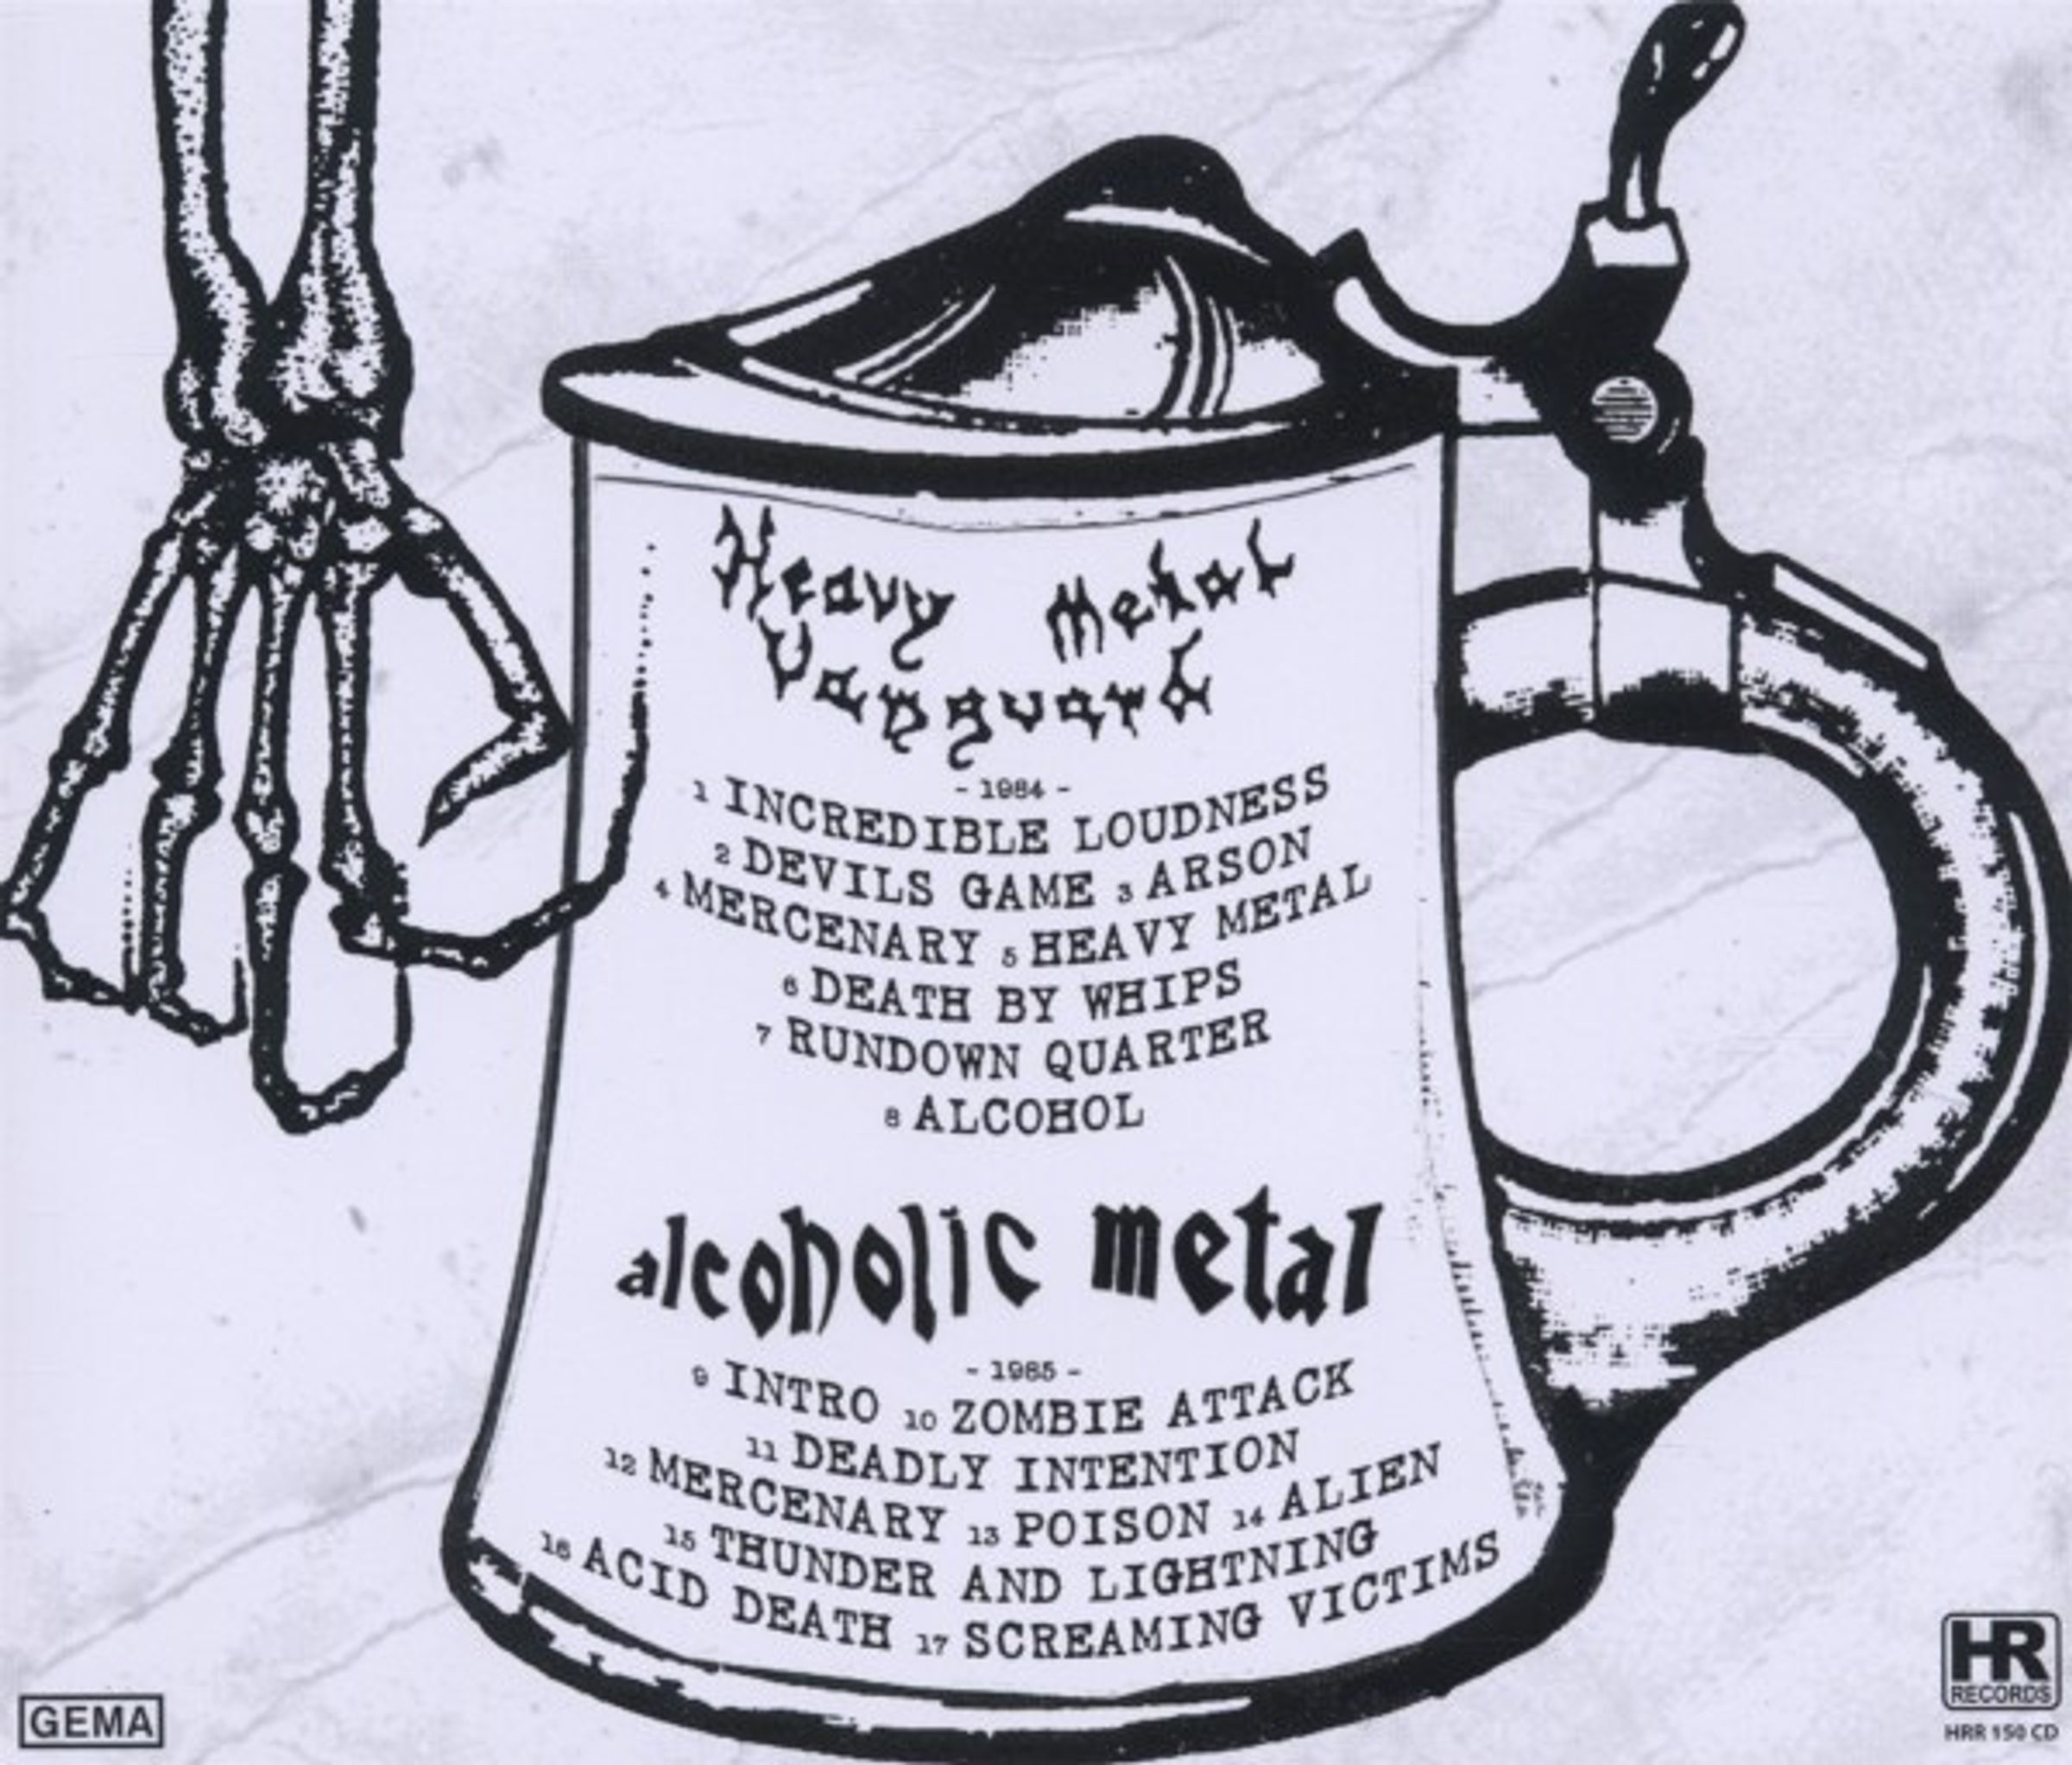 Heavy Metal
Vanguard
- 1984 -
1 INCREDIBLE LOUDNESS
2 DEVILS GAME 3 ARSON
4 MERCENARY 5 HEAVY METAL
6 DEATH BY WHIPS
7 RUNDOWN QUARTER
8 ALCOHOL
alcoholic metal
- 1985 -
9 INTRO 10 ZOMBIE ATTACK
11 DEADLY INTENTION
12 MERCENARY 13 POISON 14 ALIEN
15 THUNDER AND LIGHTNING
16 ACID DEATH 17 SCREAMING VICTIMS
GEMA
HR
RECORDS
HRR 150 CD